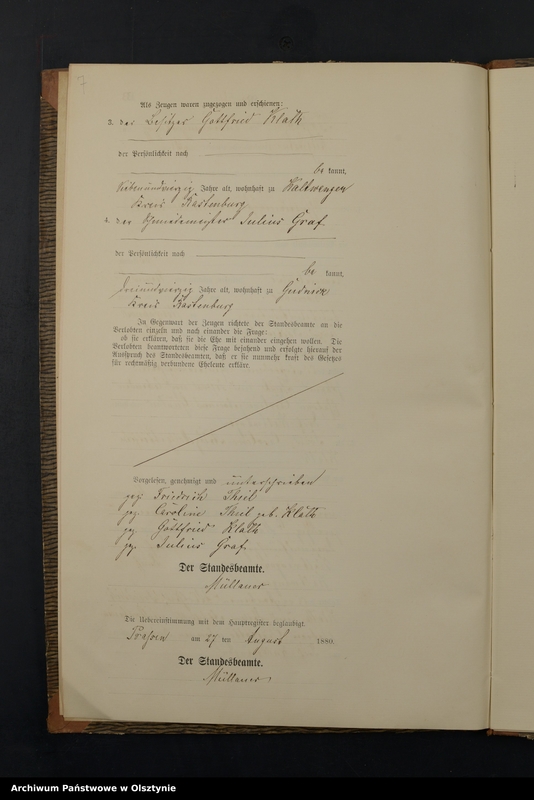 7
Als Zeugen waren zugezogen und erschienen:
3. der Besitzer Gottfried Klath
der Persönlichkeit nach
be kannt,
siebenundvierzig Jahre alt, wohnhaft zu
Kreis Rastenburg
4. der Schmiedemeister Julius Graf
der Persönlichkeit nach
be kannt,
Jahre alt, wohnhaft zu
Kreis Rastenburg
In Gegenwart der Zeugen richtete der Standesbeamte an die
Verlobten einzeln und nach einander die Frage:
ob sie erklären, daß sie die Ehe mit einander eingehen wollen. Die
Verlobten beantworteten diese Frage bejahend und erfolgte hierauf der
Ausspruch des Standesbeamten, daß er sie nunmehr kraft des Gesetzes
für rechtmäßig verbundene Eheleute erkläre.
Vorgelesen, genehmigt und unterschrieben
gez. Friedrich Theil
gez. Caroline Theil geb. Klath
gez. Gottfried Klath
gez. Julius Graf
Der Standesbeamte.
Die Uebereinstimmung mit dem Hauptregister beglaubigt.
am 27 ten August 1880.
Der Standesbeamte.
Archiwum Państwowe w Olsztynie